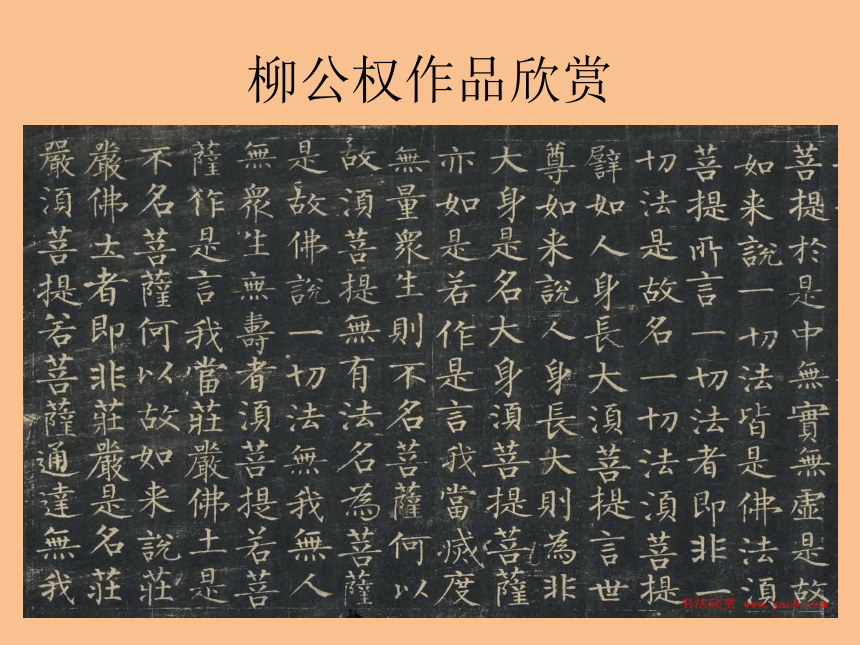 柳公权作品欣赏
菩提於是中無實無虛是故
如来說一切法皆是佛法湏
菩提所言一切法者即非
切法是故名一切法湏菩提
譬如人身長大湏菩提言世
尊如来說人身長大則為非
大身是名大身湏菩提菩薩
亦如是若作是言我當滅度
無量衆生則不名菩薩何以
故湏菩提無有法名為菩薩
是故佛說一切法無我無人
無衆生無壽者湏菩提若菩
薩作是言我當莊嚴佛土是
不名菩薩何以故如来說莊
嚴佛土者即非莊嚴是名莊
嚴湏菩提若菩薩通達無我
书法欣赏